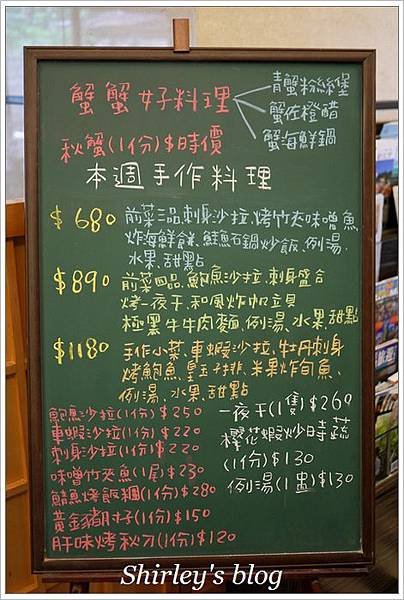 蟹蟹好料理
青蟹粉絲堡
蟹佐橙醋
蟹海鮮鍋
秋蟹(1份)$時價
本週手作料理
$680 前菜三品,刺身沙拉,烤竹夾味噌魚,
炸海鮮餅、鮭魚石鍋炒飯、例湯、
水果、甜點
$890 前菜四品、鮑魚沙拉、刺身盛合
烤一夜干、和風炸帆立貝
極黑牛牛肉麵、例湯、水果、甜點
$1180 手作小菜、車蝦沙拉、牡丹刺身
烤鮑魚、皇子排、米果炸旬魚、
例湯、水果、甜點
鮑魚沙拉(1份)$250
車蝦沙拉(1份)$220
刺身沙拉(1份)$220
味噌竹夾魚(1尾)$230
鯖魚烤飯糰(1份)$280
黃金豬肚仔(1份)$150
肝味烤秋刀(1份)$120
一夜干(1隻)$269
櫻花蝦炒時蔬
(1份)$130
例湯(1盅)$130
Shirley's blog